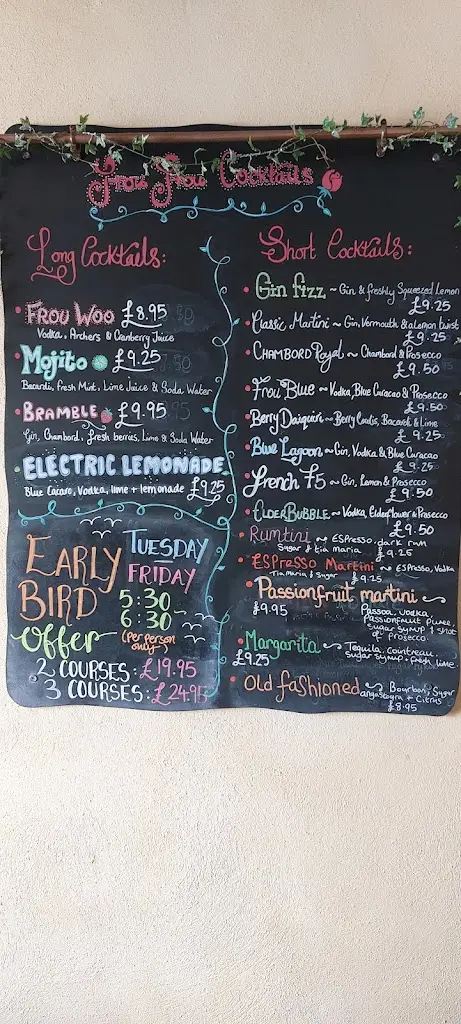 Frou Frou Cocktails
Long Cocktails:
Frou Woo £8.95
Vodka, Archers & Cranberry Juice
Mojito £9.25
Bacardi, Fresh Mint, Lime Juice & Soda Water
Bramble £9.95
Gin, Chambord, fresh berries, Lime & Soda Water
ELECTRIC LEMONADE
Blue Caraco, Vodka, lime + lemonade £9.25
EARLY BIRD offer
TUESDAY
FRIDAY
5:30 -
6:30
(Per person only)
2 COURSES: £19.95
3 COURSES: £24.95
Short Cocktails:
Gin fizz ~ Gin & freshly Squeezed Lemon
£9.25
Classic Martini ~ Gin, Vermouth & a Lemon twist
£9.25
CHAMBORD Royal ~ Chambord & Prosecco
£9.50
Frou Blue ~ Vodka, Blue Curacao & Prosecco
£9.50
Berry Daiquiri ~ Berry Coulis, Bacardi & Lime
£9.25
Blue Lagoon ~ Gin, Vodka & Blue Curacao
£9.25
French 75 ~ Gin, Lemon & Prosecco
£9.50
ELDERBUBBLE ~ Vodka, Elderflower & Prosecco
£9.50
Rumtini ~ ESPresso, dark rum
Sugar & tia maria £9.25
ESPresso Martini ~ ESPresso, Vodka
Tia Maria / Sugar £9.25
Passionfruit martini ~
£9.95 Passoa, vodka,
Passionfruit puree,
sugar syrup 1 shot
of Prosecco.
Margarita ~ Tequila, Cointreau,
£9.25 sugar syrup, fresh lime
Old fashioned ~ Bourbon, Sugar
angostoura + Citrus
£8.95